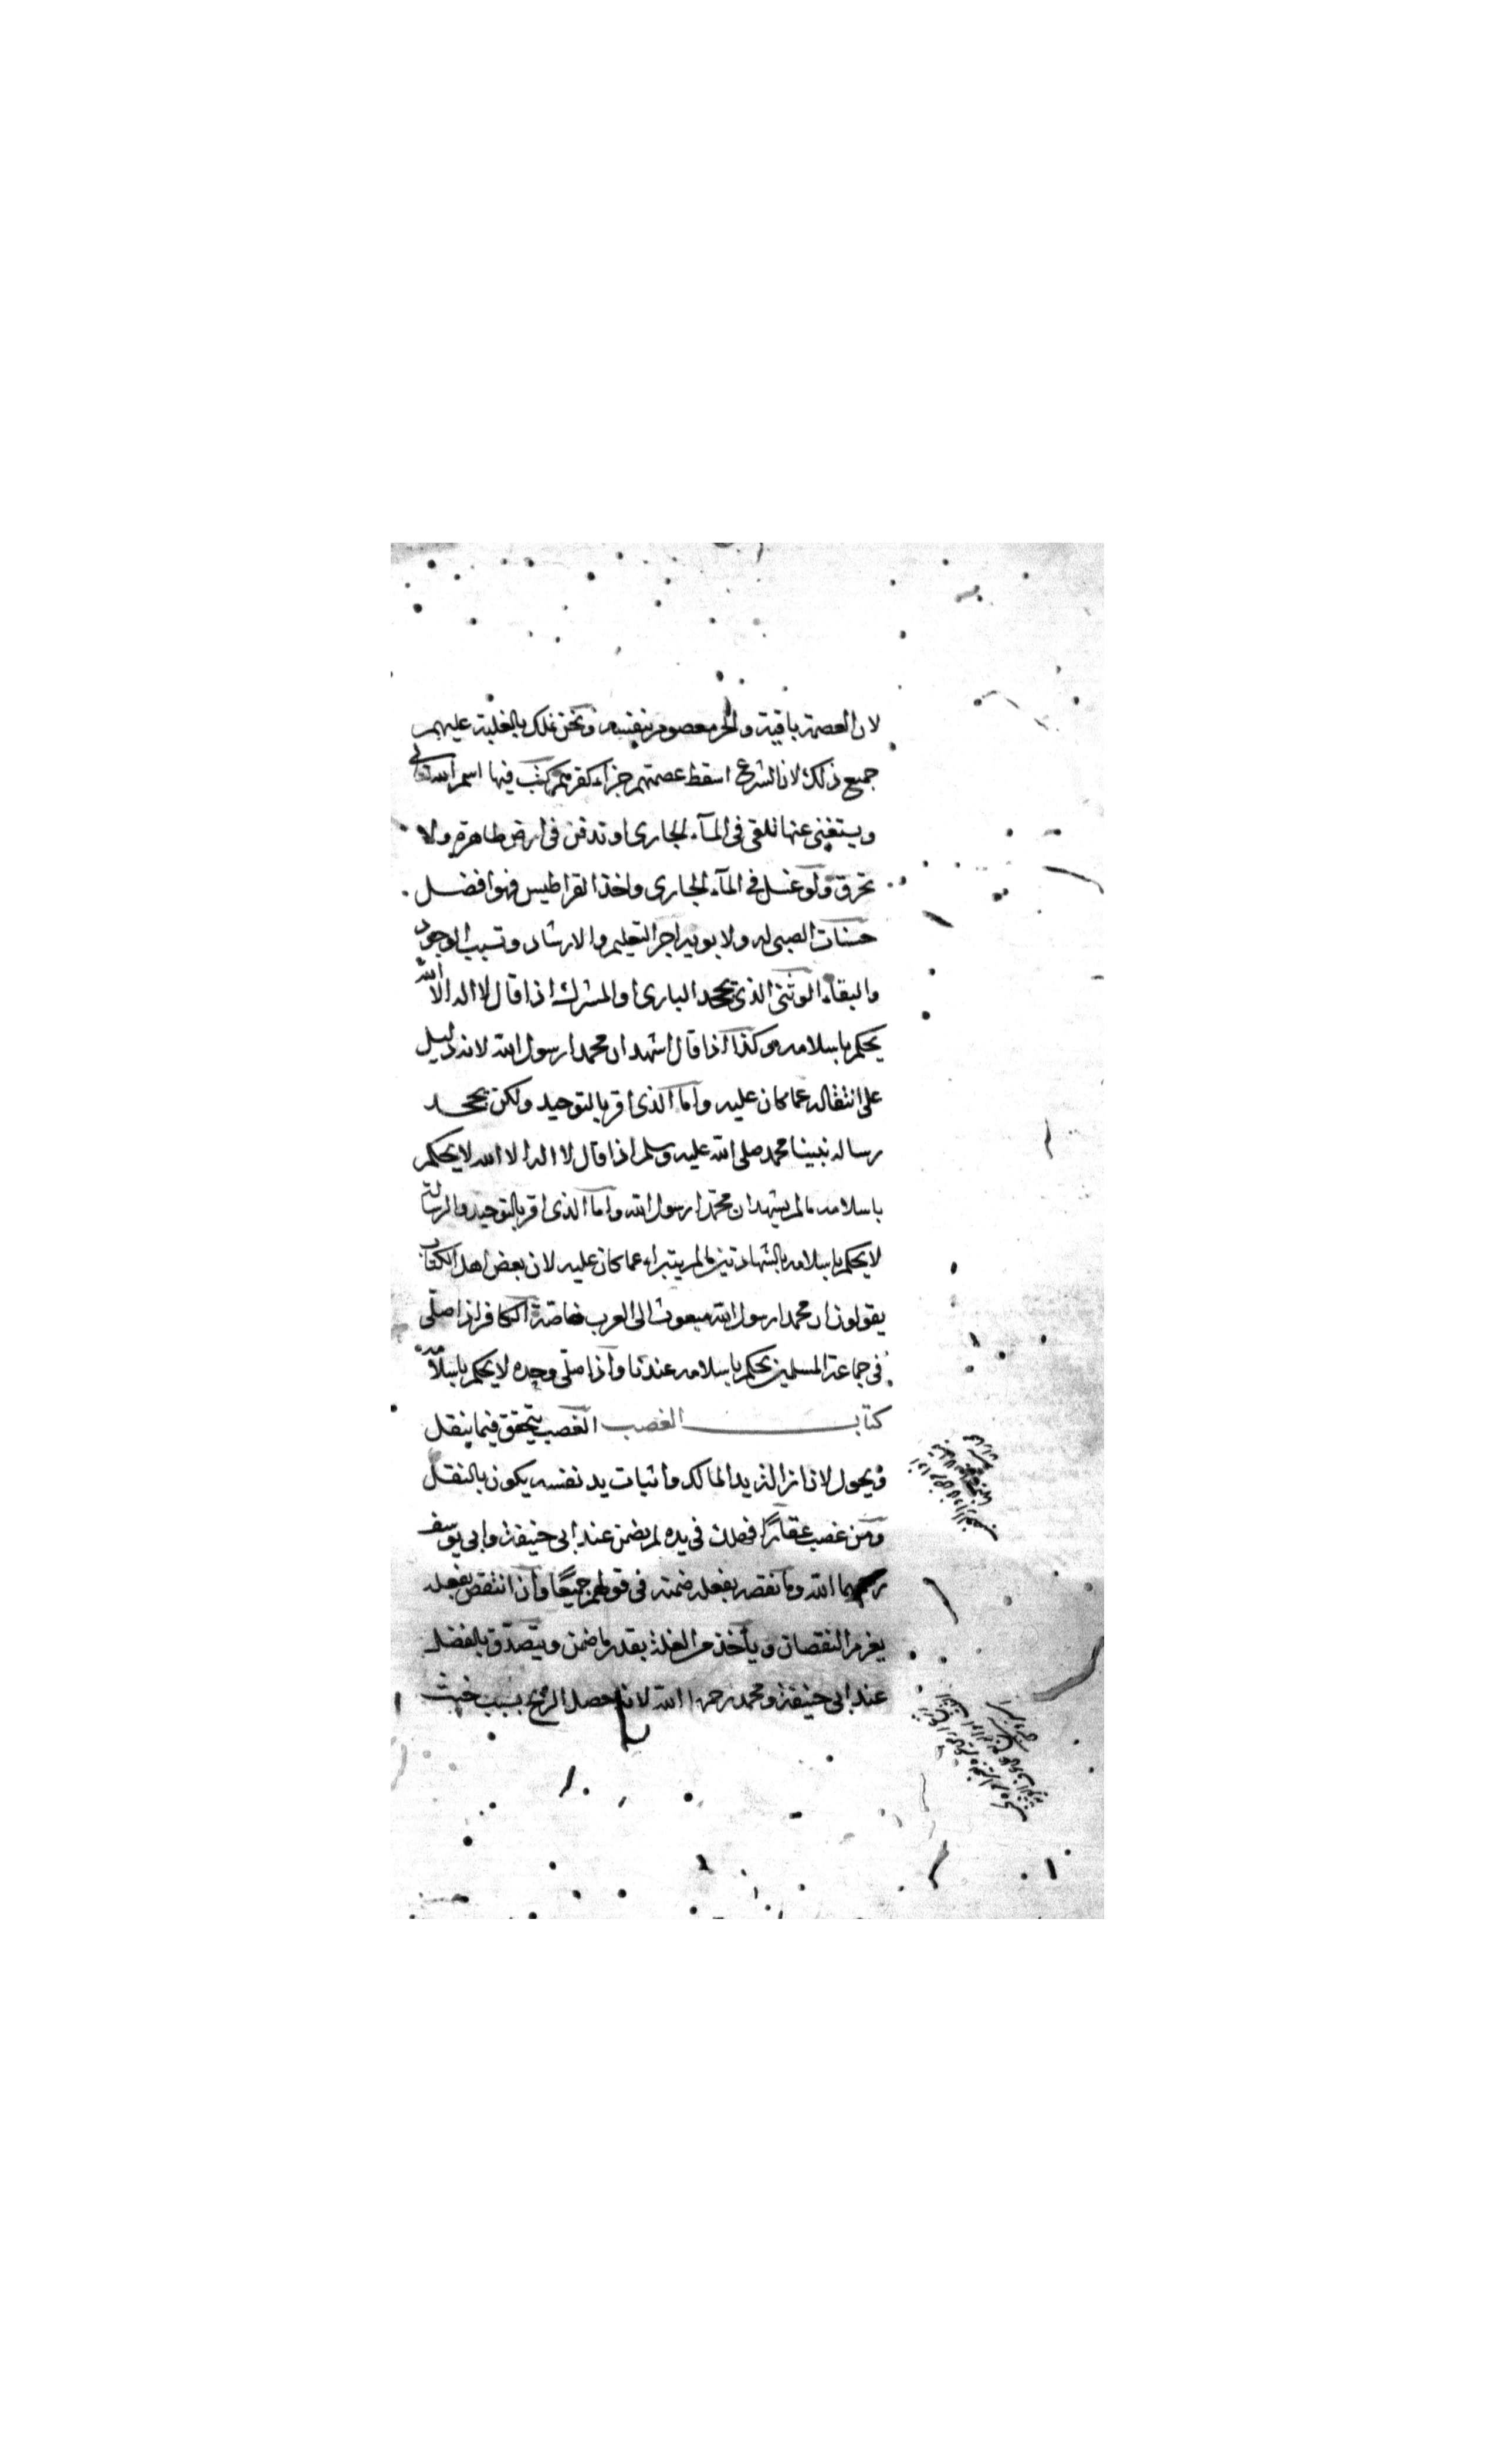 لان العصمة باقية والحر معصوم بنفسه ونحن نملك بالغلبة عليهم
جميع ذلك لان الشرع اسقط عصمتهم جزاء كفرهم كتب فيها اسم الله تعالى
ويستغنى عنها تلقى فى المآء الجارى او تدفن فى ارض طاهرة ولا
تحرق ولو غسل فى المآء الجارى واخذ القراطيس فهو افضل
حسنات الصبى له ولابويه اجر التعليم والارشاد وتسبب الوجود
والبقاء الوثنى الذى يجحد البارى او المشرك اذا قال لا اله الا الله
يحكم باسلامه وكذا اذا قال اشهد ان محمدا رسول الله لانه دليل
على انتقاله عما كان عليه واما الذى اقر بالتوحيد ولكن يجحد
رساله نبينا محمد صلى الله عليه وسلم اذا قال لا اله الا الله لا يحكم
باسلامه مالم يشهد ان محمدا رسول الله واما الذى اقر بالتوحيد والرسالة
لا يحكم باسلامه بالشهادتين مالم يتبراء عما كان عليه لان بعض اهل الكتاب
يقولون ان محمدا رسول الله مبعوث الى العرب خاصة الكافر اذا صلى
فى جماعة المسلمين يحكم باسلامه عندنا واذا صلى وحده لا يحكم باسلامه
كتاب الغصب الغصب يتحقق فيما ينقل
ويحول لان ازالة يد المالك واثبات يد نفسه يكون بالنقل
ومن غصب عقارًا فهلك فى يده لم يضمن عند ابى حنيفة وابى يوسف
رحمهما الله وما نقصه بفعله ضمنه فى قولهم جميعًا وان انتقص بفعله
يغرم النقصان ويأخذ من الغلة بقدر ما ضمن ويتصدق بالفضل
عند ابى حنيفة ومحمد رحمهما الله لانه حصل الربح بسبب خبث